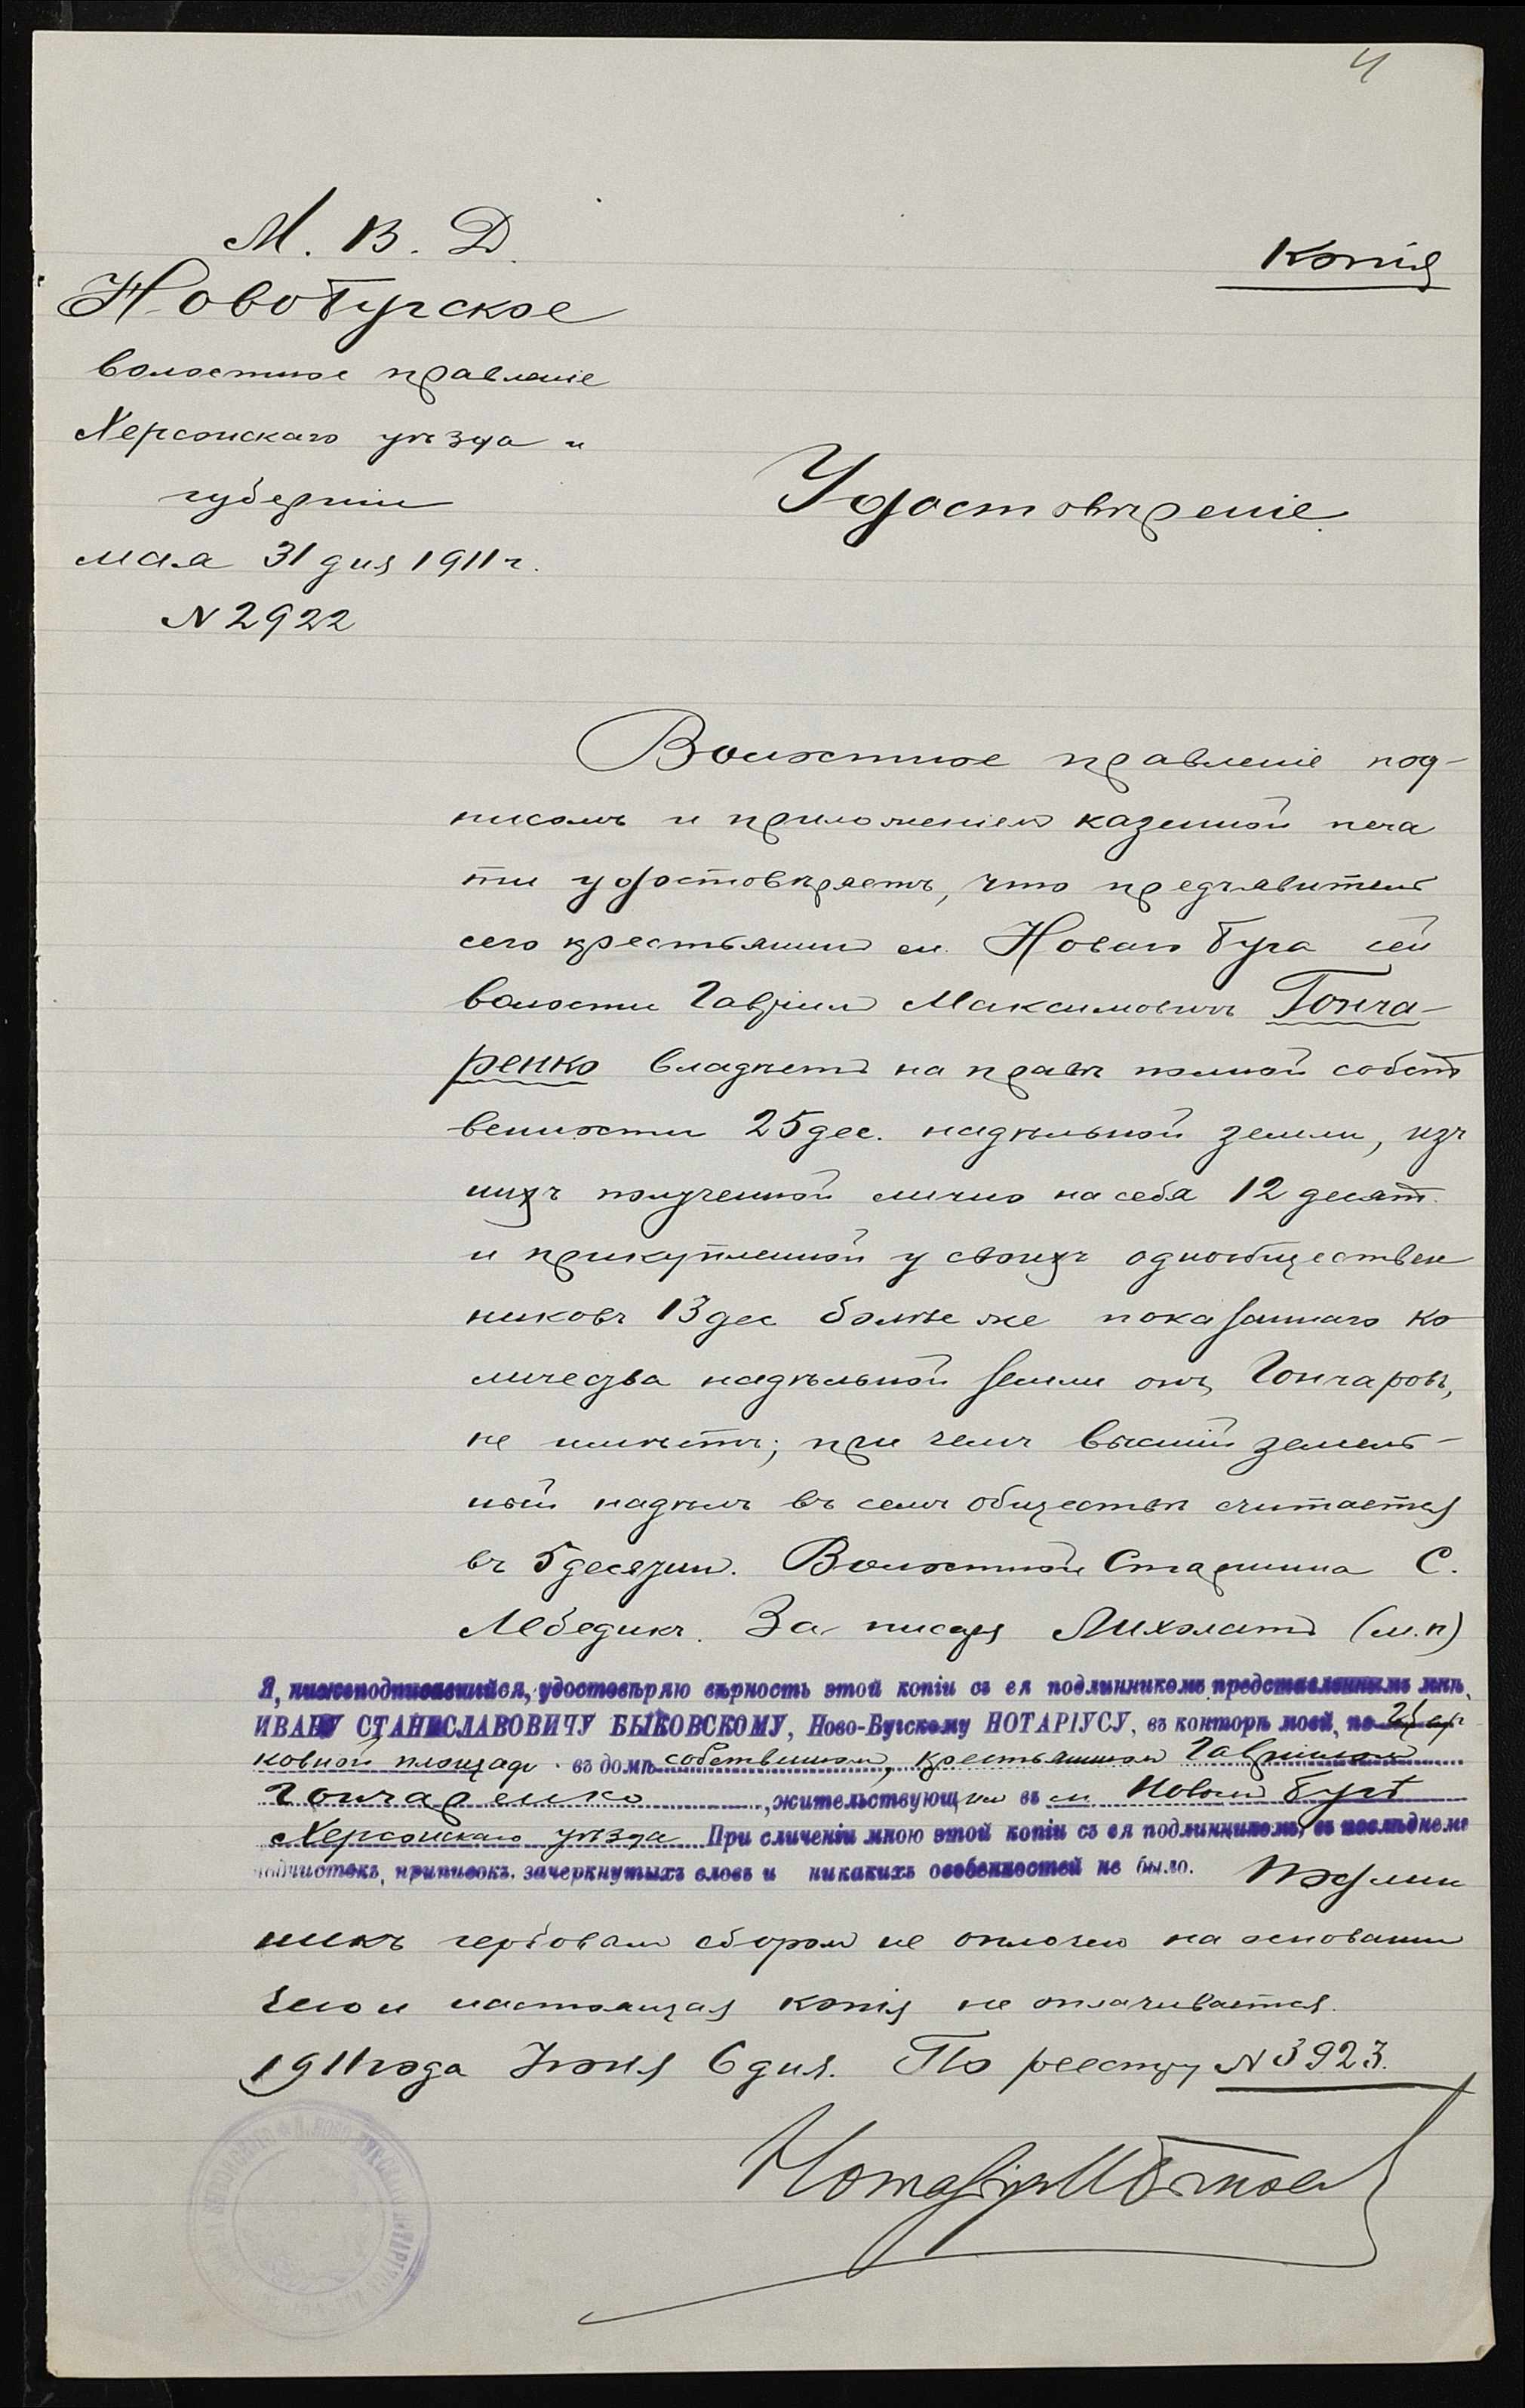 4
М. В. Д.
Копія
Новобугское
волостное правленіе
Херсонскаго уѣзда и
губерніи
мая 31 дня 1911 г.
N 2922
Удостовѣреніе.
Волостное правленіе под-
писомъ и приложеніемъ казенной печа
ти удостовѣряетъ, что предъявитель
сего крестьянинъ м. Новаго Буга сей
волости Гавріилъ Максимовичъ Гонча-
ренко владѣетъ на правѣ полной собст
венности 25 дес. надѣльной земли, изъ
нихъ полученной лично на себя 12 десят.
и прикупленной у своихъ однообществен
никовъ 13 дес болѣе же показаннаго ко
личества надѣльной земли онъ, Гончаровъ,
не имѣетъ; при чемъ высшій земель-
ный надѣлъ въ семъ обществѣ считается
въ 5 десятин. Волостной Старшина С.
Лебедикъ. За писаря Лихолатъ (м.п)
Я, нижеподписавшійся, удостовѣряю вѣрность этой копіи съ ея подлинникомъ представленнымъ мнѣ,
ИВАНУ СТАНИСЛАВОВИЧУ БЫКОВСКОМУ, Ново-Бугскому НОТАРІУСУ, въ конторѣ моей, по Цер-
ковной площади въ домѣ собственномъ, крестьяниномъ Гавріиломъ
Гончаренко, жительствующим въ м. Новомъ Бугѣ
Херсонскаго уѣзда При сличеніи мною этой копіи съ ея подлинникомъ, въ послѣднемъ
подчистокъ, приписокъ, зачеркнутыхъ словъ и никакихъ особенностей не было. Подлин
никъ гербовым сборомъ не оплоченъ на основаніи
чего и настоящая копія не оплачивается.
1911 года Іюня 6 дня. По реестру N 3923.
Нотаріусъ И Быковс